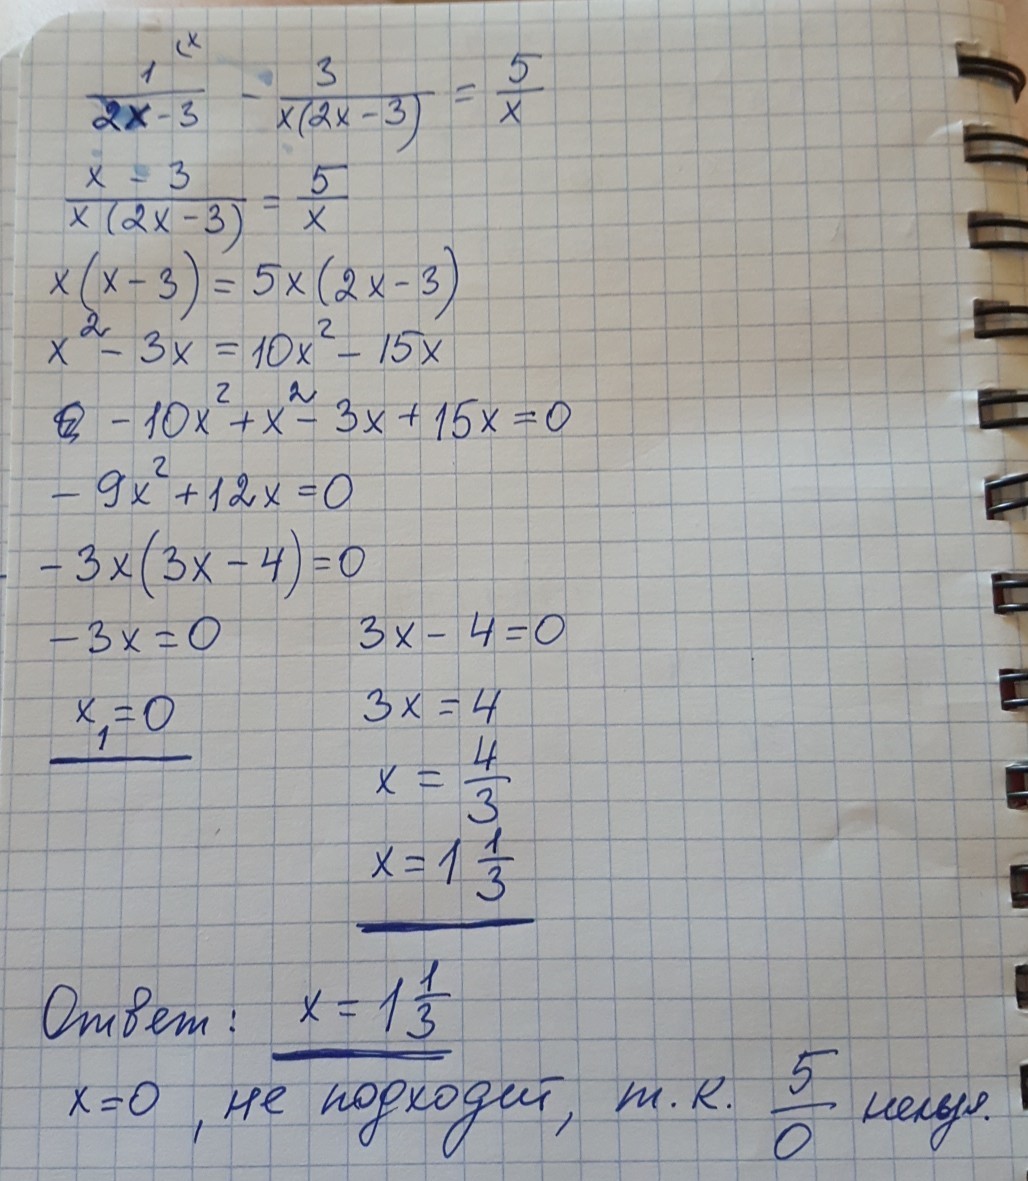 1(x / 2x-3 - 3 / x(2x-3) = 5/x
x - 3 / x(2x-3) = 5/x
x(x-3) = 5x(2x-3)
x² - 3x = 10x² - 15x
-10x² + x² - 3x + 15x = 0
-9x² + 12x = 0
-3x(3x-4) = 0
-3x = 0 3x - 4 = 0
x₁ = 0 3x = 4
x = 4/3
x = 1 1/3
Ответ: x = 1 1/3
x=0, не подходит, т.к. 5/0 нельзя.